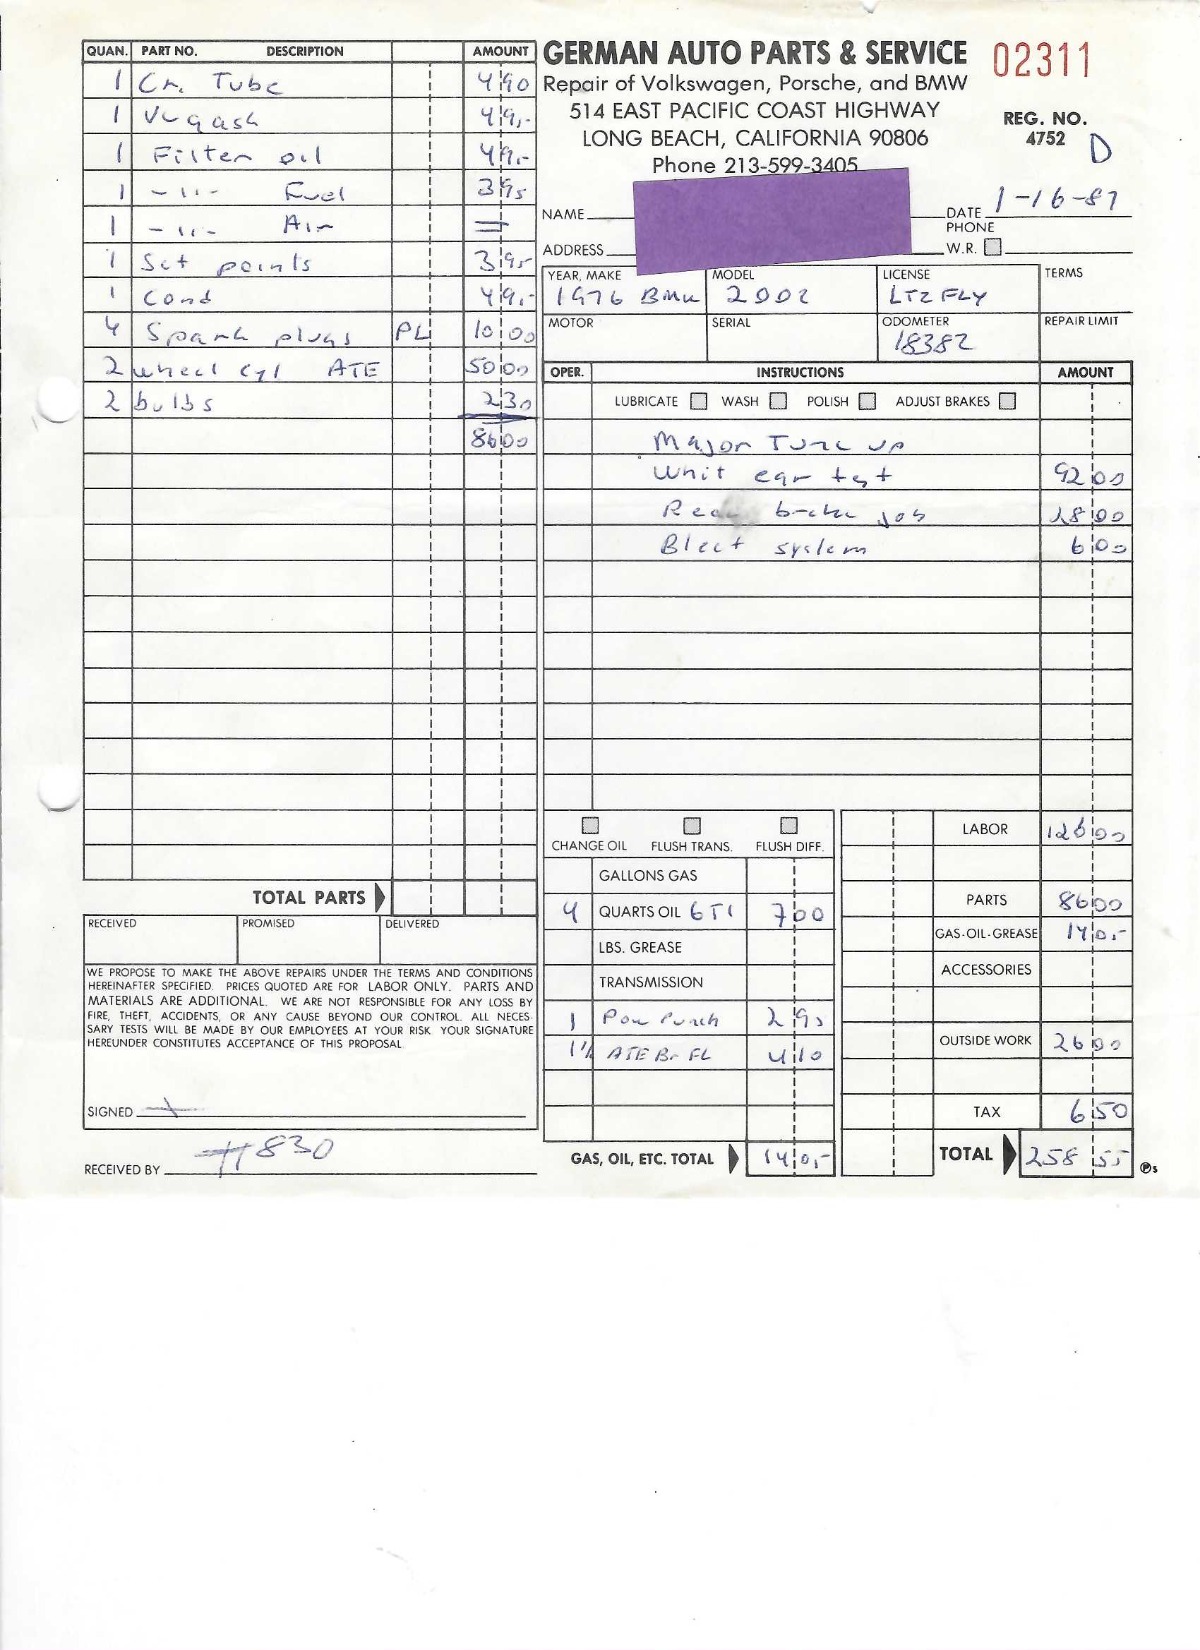 QUAN. PART NO. DESCRIPTION AMOUNT
1 Cr. Tube 4 90
1 VC gash 4 9,-
1 Filter oil 4 9,-
1 -"- Fuel 3 95
1 -"- Air =
1 Set points 3 9,-
1 Cond 4 9,-
4 Spark plugs PL 10 00
2 wheel cyl ATE 50 00
2 bulbs 2 30
86 00
TOTAL PARTS
RECEIVED PROMISED DELIVERED
WE PROPOSE TO MAKE THE ABOVE REPAIRS UNDER THE TERMS AND CONDITIONS
HEREINAFTER SPECIFIED. PRICES QUOTED ARE FOR LABOR ONLY. PARTS AND
MATERIALS ARE ADDITIONAL. WE ARE NOT RESPONSIBLE FOR ANY LOSS BY
FIRE, THEFT, ACCIDENTS, OR ANY CAUSE BEYOND OUR CONTROL. ALL NECES-
SARY TESTS WILL BE MADE BY OUR EMPLOYEES AT YOUR RISK. YOUR SIGNATURE
HEREUNDER CONSTITUTES ACCEPTANCE OF THIS PROPOSAL.
SIGNED
RECEIVED BY #830
GERMAN AUTO PARTS & SERVICE 02311
Repair of Volkswagen, Porsche, and BMW
514 EAST PACIFIC COAST HIGHWAY
LONG BEACH, CALIFORNIA 90806
Phone 213-599-3405
REG. NO.
4752 D
NAME DATE 1-16-87
PHONE
ADDRESS W.R.
YEAR, MAKE MODEL LICENSE TERMS
1976 BMW 2002 LTZ FLY
MOTOR SERIAL ODOMETER REPAIR LIMIT
18382
OPER. INSTRUCTIONS AMOUNT
LUBRICATE WASH POLISH ADJUST BRAKES
Major Tune up
Unit ear test 92 00
Rear brake job 28 00
Bleet system 6 00
CHANGE OIL FLUSH TRANS. FLUSH DIFF.
GALLONS GAS
4 QUARTS OIL GTI 7 00
LBS. GREASE
TRANSMISSION
1 Pow Punch 2 95
1½ ATE Br FL 4 10
GAS, OIL, ETC. TOTAL 14 0,-
LABOR 126 00
PARTS 86 00
GAS-OIL-GREASE 14 0,-
ACCESSORIES
OUTSIDE WORK 26 00
TAX 6 50
TOTAL 258 55